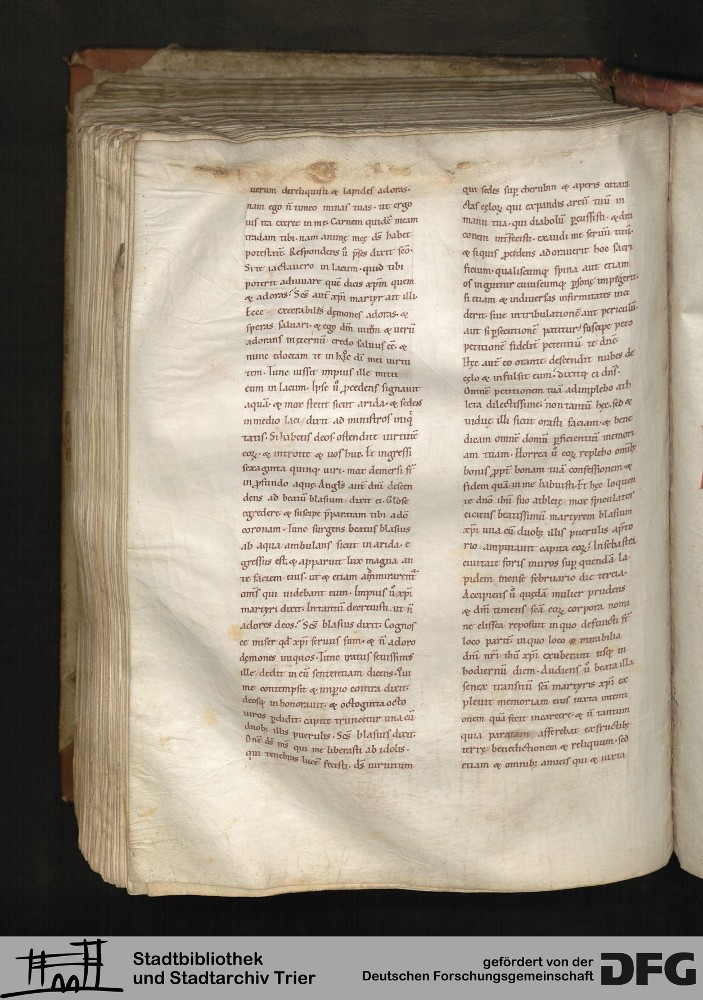 uerum dereliquisti & lapides adoras.
nam ego ñ timeo minas tuas. ut ergo
uis ita exerce in me. Carnem quidē meam
tradam tibi. nam animę meę ds̄ habet
potestatē. Respondens ū p̄ses dixit sc̄o.
Si te iactauero in lacum. quid tibi
poterit adiuuare quē dicis xp̄m quem
& adoras? Sc̄s aut̄ xp̄i martyr ait illi.
Ecce execrabilis dęmones adoras. &
speras saluari. & ego dn̄m uiuū & uerū
adorans in ęternū credo saluus ēē. &
nunc edoceam te in hoc dī mei uirtu
tem. Tunc iussit impius ille mitti
eum in lacum. Ipse ū p̄cedens signauit
aquā. & mox stetit sicut arida. & sedens
in medio laci dixit ad ministros iniq
tatis. Si habetis deos ostendite uirtutē
eoꝝ. & introite & uos huc. Et ingressi
sexaginta quinq; uiri. mox demersi st̄
in p̄fundo aquę. Angl̄s aut̄ dn̄i descen
dens ad beatū blasium dixit ei. Blose
egredere & suscipe p̄paratam tibi a dō
coronam. Tunc surgens beatus blasius
ab aqua ambulans sicut in arida. e
gressus est. & apparuit lux magna an
te faciem eius. ut & etiam ammirarent̄
om̄s qui uidebant eum. Impius ū xp̄i
martyri dixit. In tantū decreuisti. ut ñ
adores deos? Sc̄s blasius dixit. Cognos
ce miser qd̄ xp̄i seruus sum. & ñ adoro
dęmones iniquos. Tunc iratus seuissimus
ille. dedit in eū sententiam dicens. Qui
me contempsit & imperio contra dixit.
deosq; inhonorauit. & octoginta octo
uiros p̄didit. capite truncetur una cū
duob; illis puerulis. Sc̄s blasius dixit.
Dn̄e ds̄ ms̄ qui me liberasti ab idolis.
qui tenebras lucē fecisti. ds̄ uirtutum
qui sedes sup̄ cherubin & aperis
cęlos qui expandis arcū tuū in
manu tua. qui diabolū p̄cussisti. &
conem interfecisti. exaudi me seruū tuū.
& siquis p̄cedens adorauerit hoc sacri
ficium. qualiscumq; spina aut etiam
os ingutur cuiuscumq;
si etiam & in diuersas infirmitates inci
derit. siue in tribulationē aut periculū.
aut si p̄secutionē patitur. suscipe peto
petitionē fidelit̄ petentiū te dn̄e.
Hęc aut̄ eo orante descendit nubes de
cęlo & infulsit eum. dixitq; ei dn̄s.
Omnē petitionem tuā adimplebo ath
leta dilectissime. non tantū hęc. sed &
uiduę illi sicut orasti faciam. & bene
dicam omnē domū p̄ficientiū memori
am tuam. Horrea ū eoꝝ replebo omib;
bonis. p̄pt̄ bonam tuā confessionem. &
fidem quā in me habuisti. Et hęc loquen
te dn̄o ihū suo athletę. mox spiculator
eiciens beatissimū martyrem blasium
xp̄i una cū duob; illis puerulis aprto
rio. amputauit capita eoꝝ. In sebastei
ciuitate foris muros sup̄ quendā la
pidem mense februario die tercia.
Accipiens ū quędā mulier prudens
& dn̄m timens sc̄a eoꝝ corpora nomi
ne elissea reposuit in quo defuncti st̄
loco parat̄. in quo loco & mirabilia
dn̄i nr̄i ihū xp̄i exuberant usq; in
hodiernū diem. Audiens ū beata illa
senex transitū sc̄i martyris xp̄i ex
pleuit memoriam eius iuxta intenti
onem quā fecit in carcere. & ñ tantum
quia paratam afferebat ex fructib;
terrę benedictionem & reliquum. sed
etiam & omnib; amicis qui & iuxta
Stadtbibliothek
und Stadtarchiv Trier
gefördert von der
Deutschen Forschungsgemeinschaft
DFG